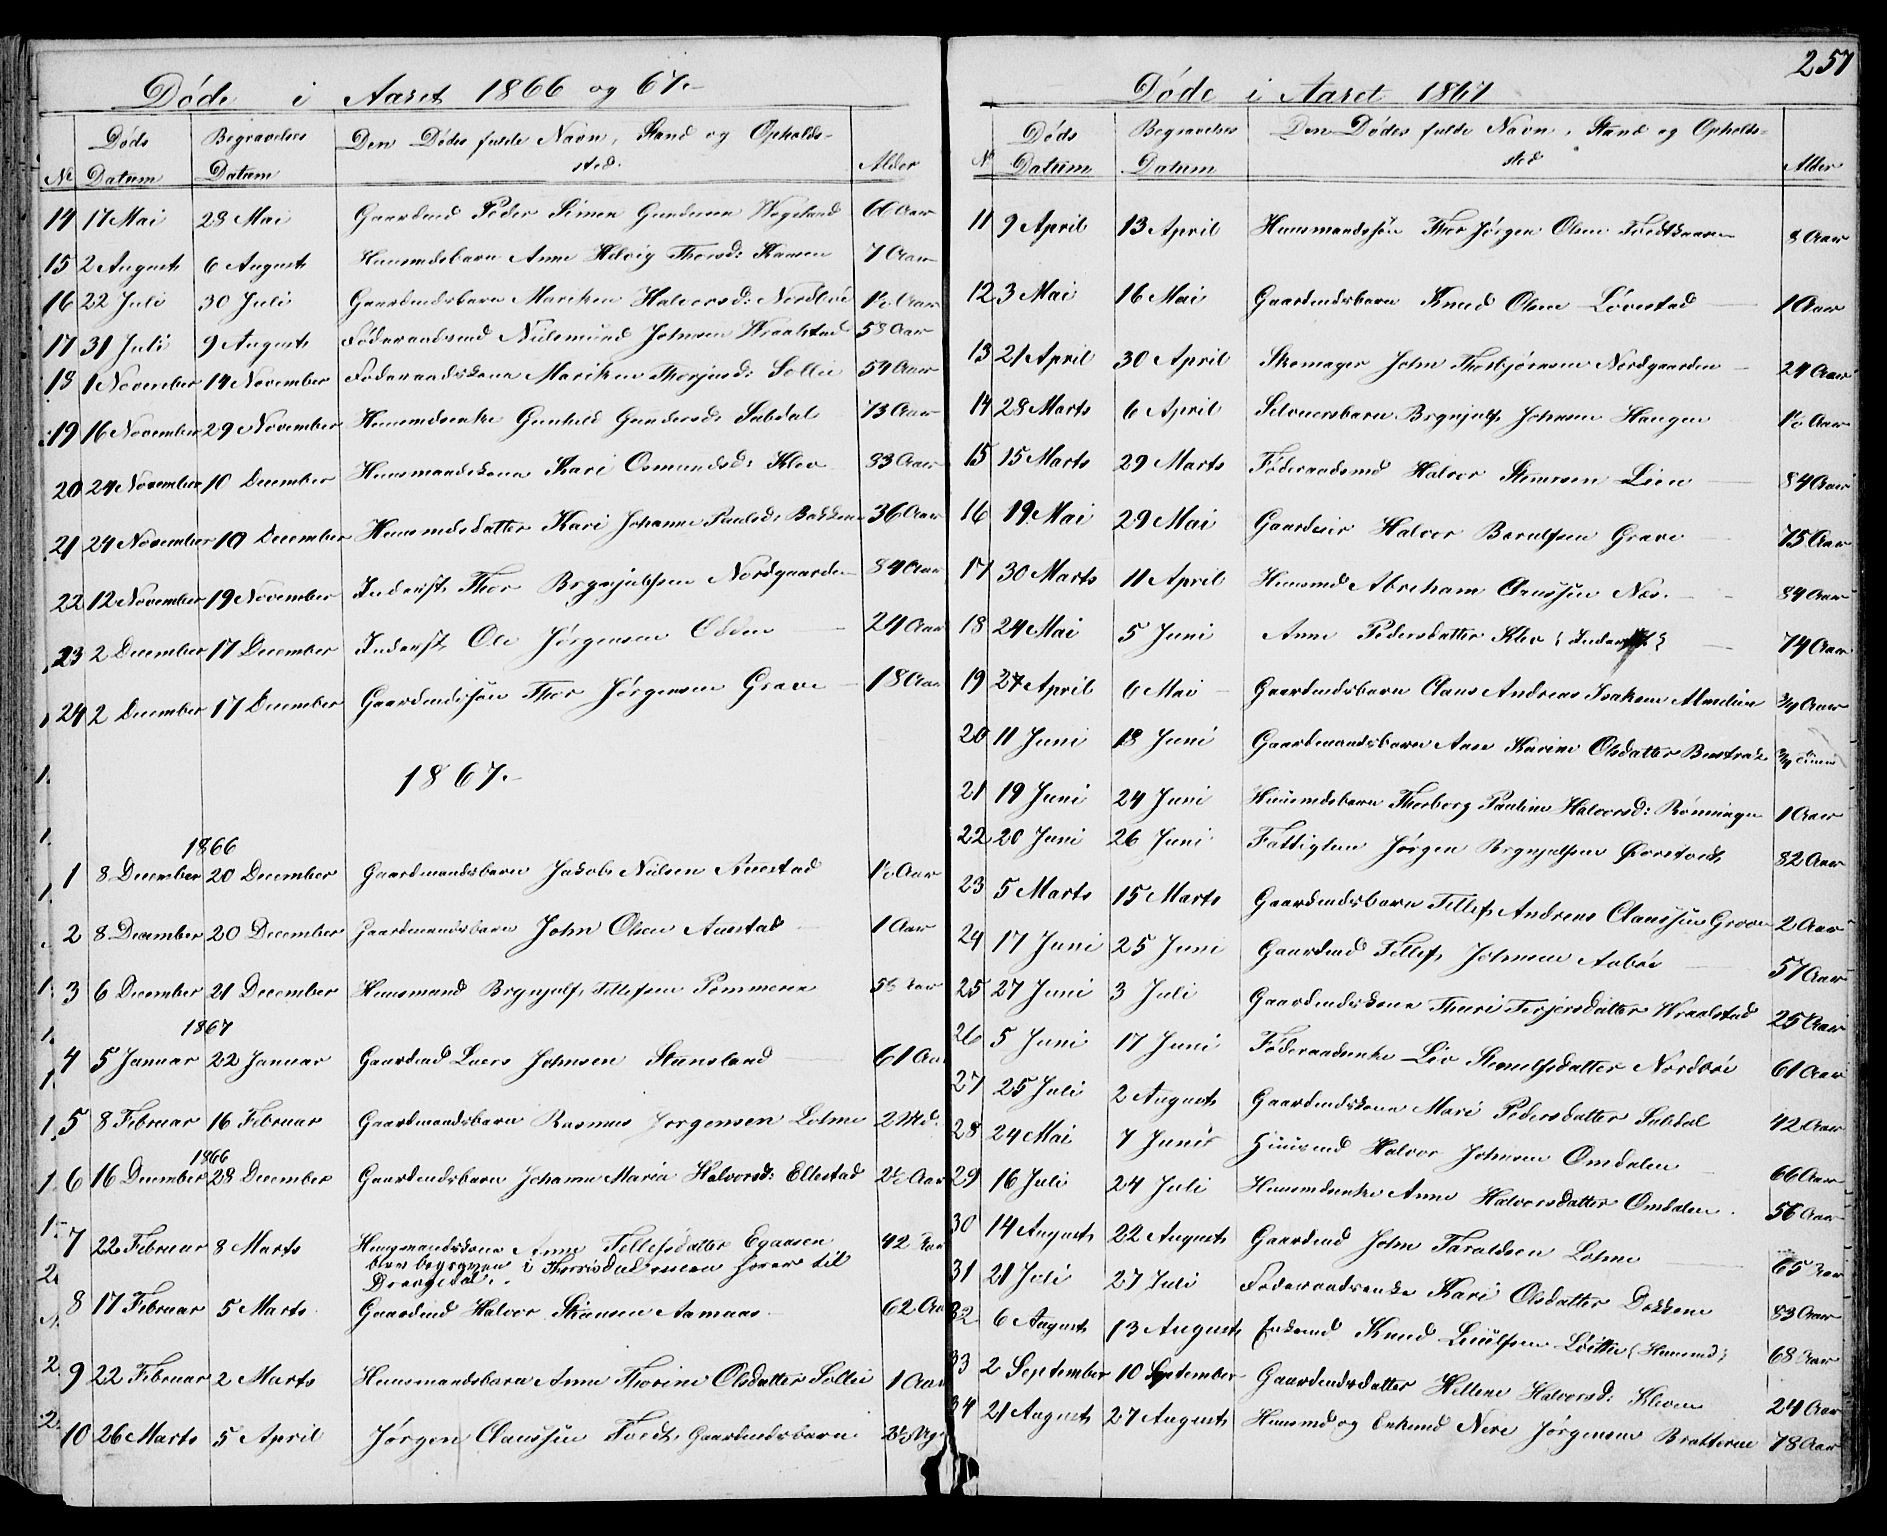 257
Døde i Aaret 1866 og 67.
No Døds Datum Begravelses Datum Den Dødes fulde Navn, Stand og Opholdssted. Alder
14 17 Mai 28 Mai Gaardmd Peder Simon Gundersen 66 Aar
15 2 August 6 August Huusmdsbarn Anne Helvig Thorsd: Hansen 7 Aar
16 22 Juli 30 Juli Gaardmdsbarn Mariken Halvorsd: Nordbøe 1½ Aar
17 31 Juli 9 August Føderaadsmd Johnsen Wraalstad 58 Aar
18 1 November 14 November Føderaadskone Mariken Therjusd: Sollie 54 Aar
19 16 November 29 November Huusmdsenke Gunhild Gundersd: Subdal 73 Aar
20 24 November 10 December Huusmandskone Kari Osmundsd: Klev 33 Aar
21 24 November 10 December Huusmdsdatter Kari Johanne Paulsd: Bakken 36 Aar
22 12 November 19 November Inderst Thor Brynjulfsen Nordgaarden 84 Aar
23 2 December 17 December Inderst Ole Jørgensen Odden 24 Aar
24 2 December 17 December Gaardmdssøn Thor Jørgensen Grave 18 Aar
1867.
1866
1 8 December 20 December Gaardmandsbarn Jakob Nielsen Aaestad 1½ Aar
2 8 December 20 December Gaardmandsbarn John Olsen Aaestad 1 Aar
3 6 December 21 December Huusmand Brynjulf Tellefsen Pommeren Aar
1867
4 5 Januar 22 Januar Gaardmd Laers Johnsen Stensland 61 Aar
5 8 Februar 16 Februar Gaardmandsbarn Rasmus Jørgensen Lohne 2 Md.
1866
6 16 December 28 December Gaardmdsbarn Johanne Maria Halvorsd: Ellestad 2½ Aar
1867
7 22 Februar 8 Marts Huusmandskone Anne Tellefsdatter Egaasen
blev begraven i Thorrisdal men hører til
Drangedal.
42 Aar
8 17 Februar 5 Marts Gaardmd Halvor Aamaas 62 Aar
9 22 Februar 2 Marts Huusmandsbarn Anne Thorine Olsdatter Sollie 1 Aar
10 26 Marts 5 April Jørgen Claussøn Foedt, Gaardmdsbarn
Døde i Aaret 1867
No Døds Datum Begravelses Datum Den Dødes fulde Navn, Stand og Opholdssted Alder
11 9 April 13 April Huusmandssøn Thor Jørgen Olsen 8 Aar
12 3 Mai 16 Mai Gaardmdsbarn Knud Olsen Løvestad 1 Aar
13 21 April 30 April Skomager John Thorbjørnsen Nordgaarden 24 Aar
14 28 Marts 6 April Selveiersbarn Brynjulf Johnsen Haugen 1½ Aar
15 15 Marts 29 Marts Føderaadsmd Halvor Lien 84 Aar
16 19 Mai 29 Mai Gaardeier Halvor Berulfsen Grave 75 Aar
17 30 Marts 11 April Huusmd Abraham Claussøn Næs. 84 Aar
18 24 Mai 5 Juni Anne Pedersdatter Klev (Inderst) 74 Aar
19 27 April 6 Mai Gaardmdsbarn Claus Andreas Isaksen 3/4 Aar
20 11 Juni 18 Juni Gaardmandsbarn Anne Karine Olsdatter Bustrak
21 19 Juni 24 Juni Huusmdsbarn Thorborg Pauline Halvorsd: Rønningen 1 Aar
22 20 Juni 26 Juni Fattiglem Jørgen Brynjulfsen Ørrstvedt 82 Aar
23 5 Marts 15 Marts Gaardmdsbarn Tellef Andreas Claussøn Groven 2 Aar
24 17 Juni 25 Juni Gaardmd Tellef Johnsen Aabøe 57 Aar
25 27 Juni 3 Juli Gaardmdskone Thuri Terjersdatter Wraalstad 25 Aar
26 5 Juni 17 Juni Føderaadsenke Liv Stenulfsdatter Nordbøe 61 Aar
27 25 Juli 2 August Gaardmdskone Mari Pedersdatter Subdal 42 Aar
28 24 Mai 7 Juni Huusmd Halvor Johnsen Omdalen 66 Aar
29 16 Juli 24 Juli Huusmdenke Anne Halvorsdatter Omdalen. 56 Aar
30 14 August 22 August Gaardmd John Taraldsen Lohne 65 Aar
31 21 Juli 27 Juli Føderaadsenke Kari Olsdatter Dokken 83 Aar
32 6 August 13 August Enkemd Knud (Huusmd) 68 Aar
33 2 September 10 September Gaardmdsdatter Hellene Halvorsd: Kleven 24 Aar
34 21 August 27 August Huusmd og Enkemd Nere Jørgensen Bratterne 78 Aar